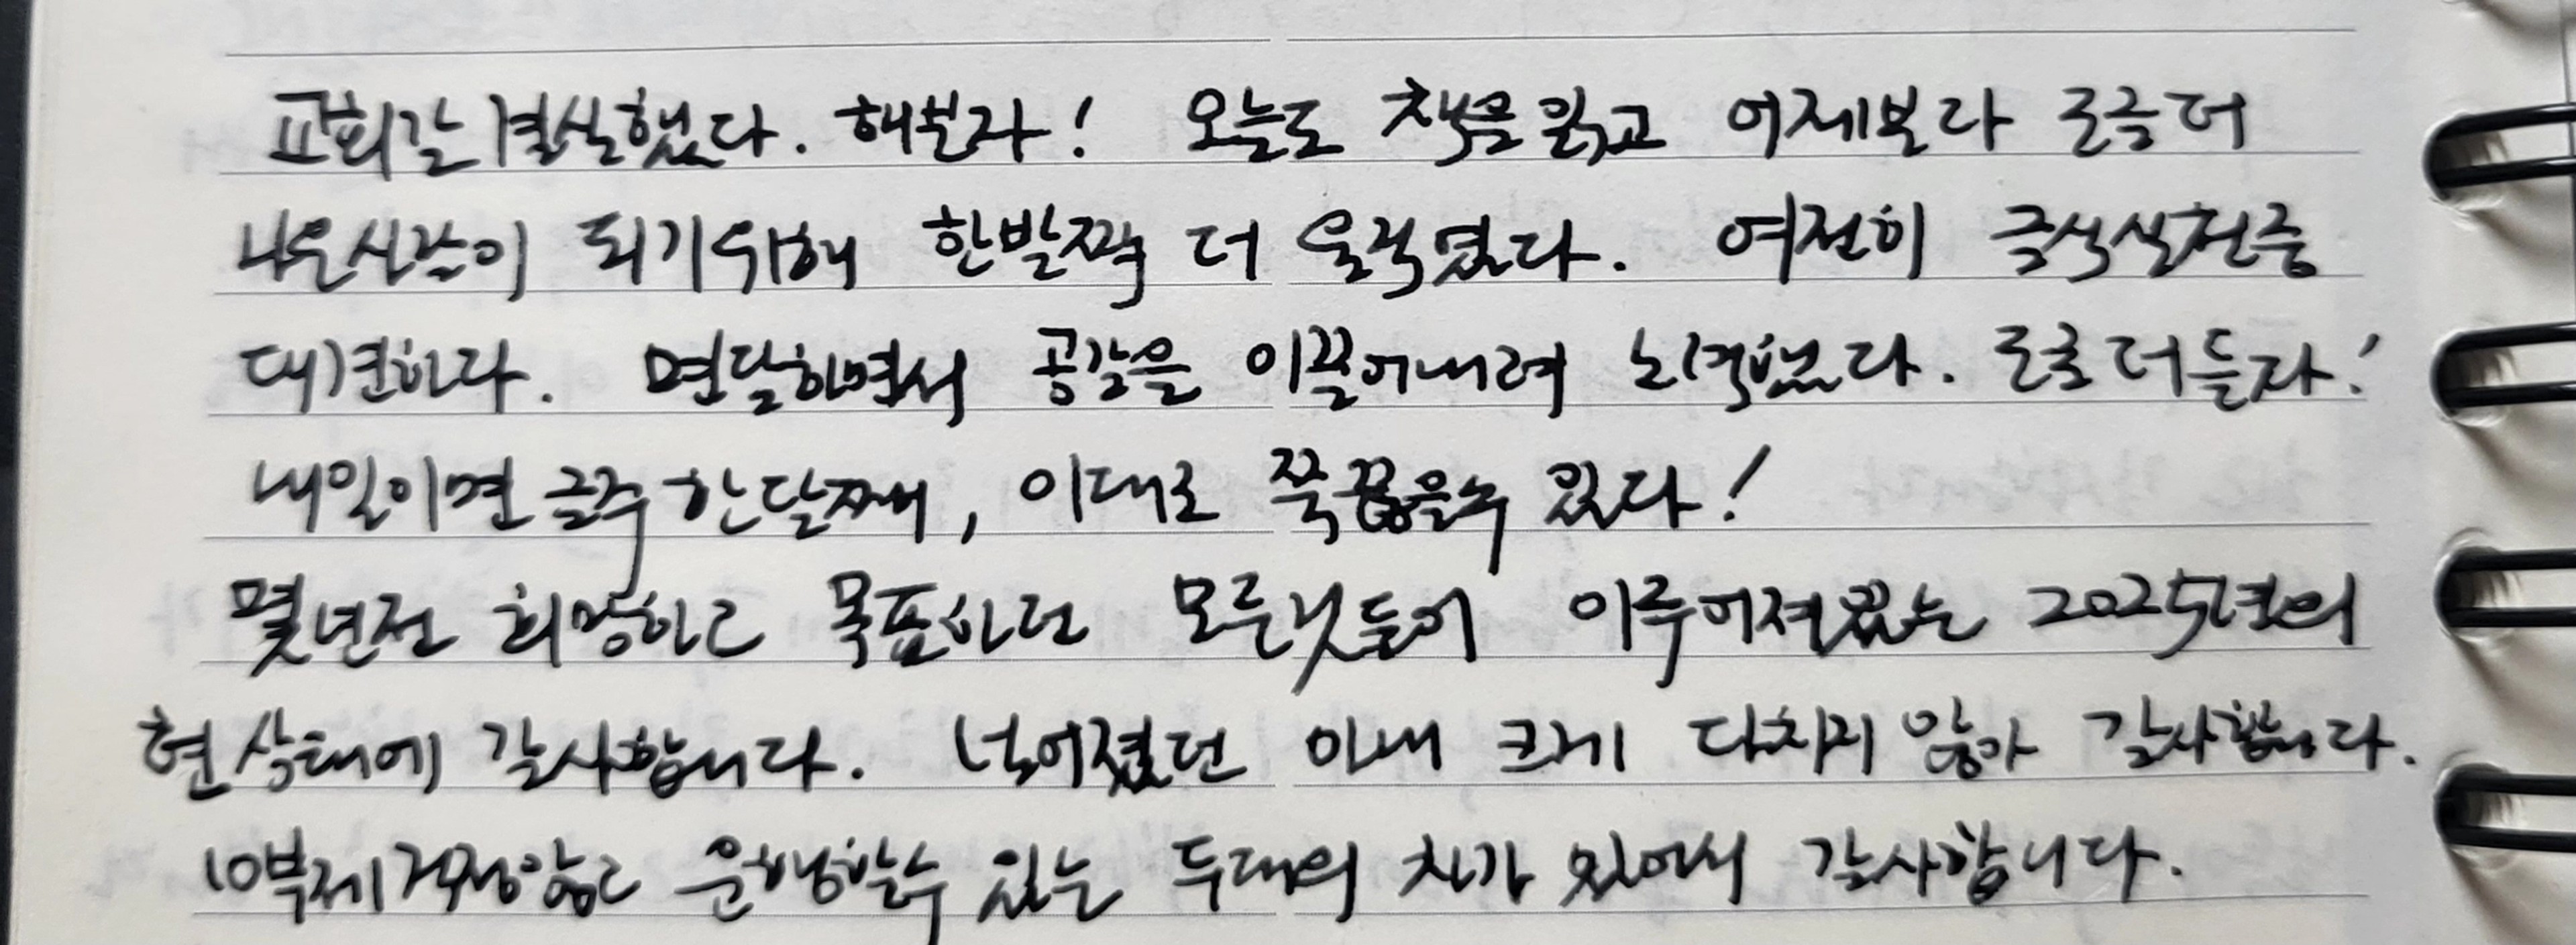 교회갈 결심했다. 해보자! 오늘도 책을 읽고 어제보다 조금 더
나은사람이 되기위해 한발짝 더 움직였다. 여전히 금식실천중
대견하다. 면담하면서 공감을 이끌어내려 노력했다. 조금 더 듣자!
내일이면 금주 한달째, 이대로 쭉 끊을수 있다!
몇년전 희망하고 목표하던 모든것들이 이루어져있는 2025년의
현 상태에 감사합니다. 넘어졌던 아내 크게 다치지 않아 감사합니다.
10부제 걱정않고 운행할수 있는 두대의 차가 있어서 감사합니다.